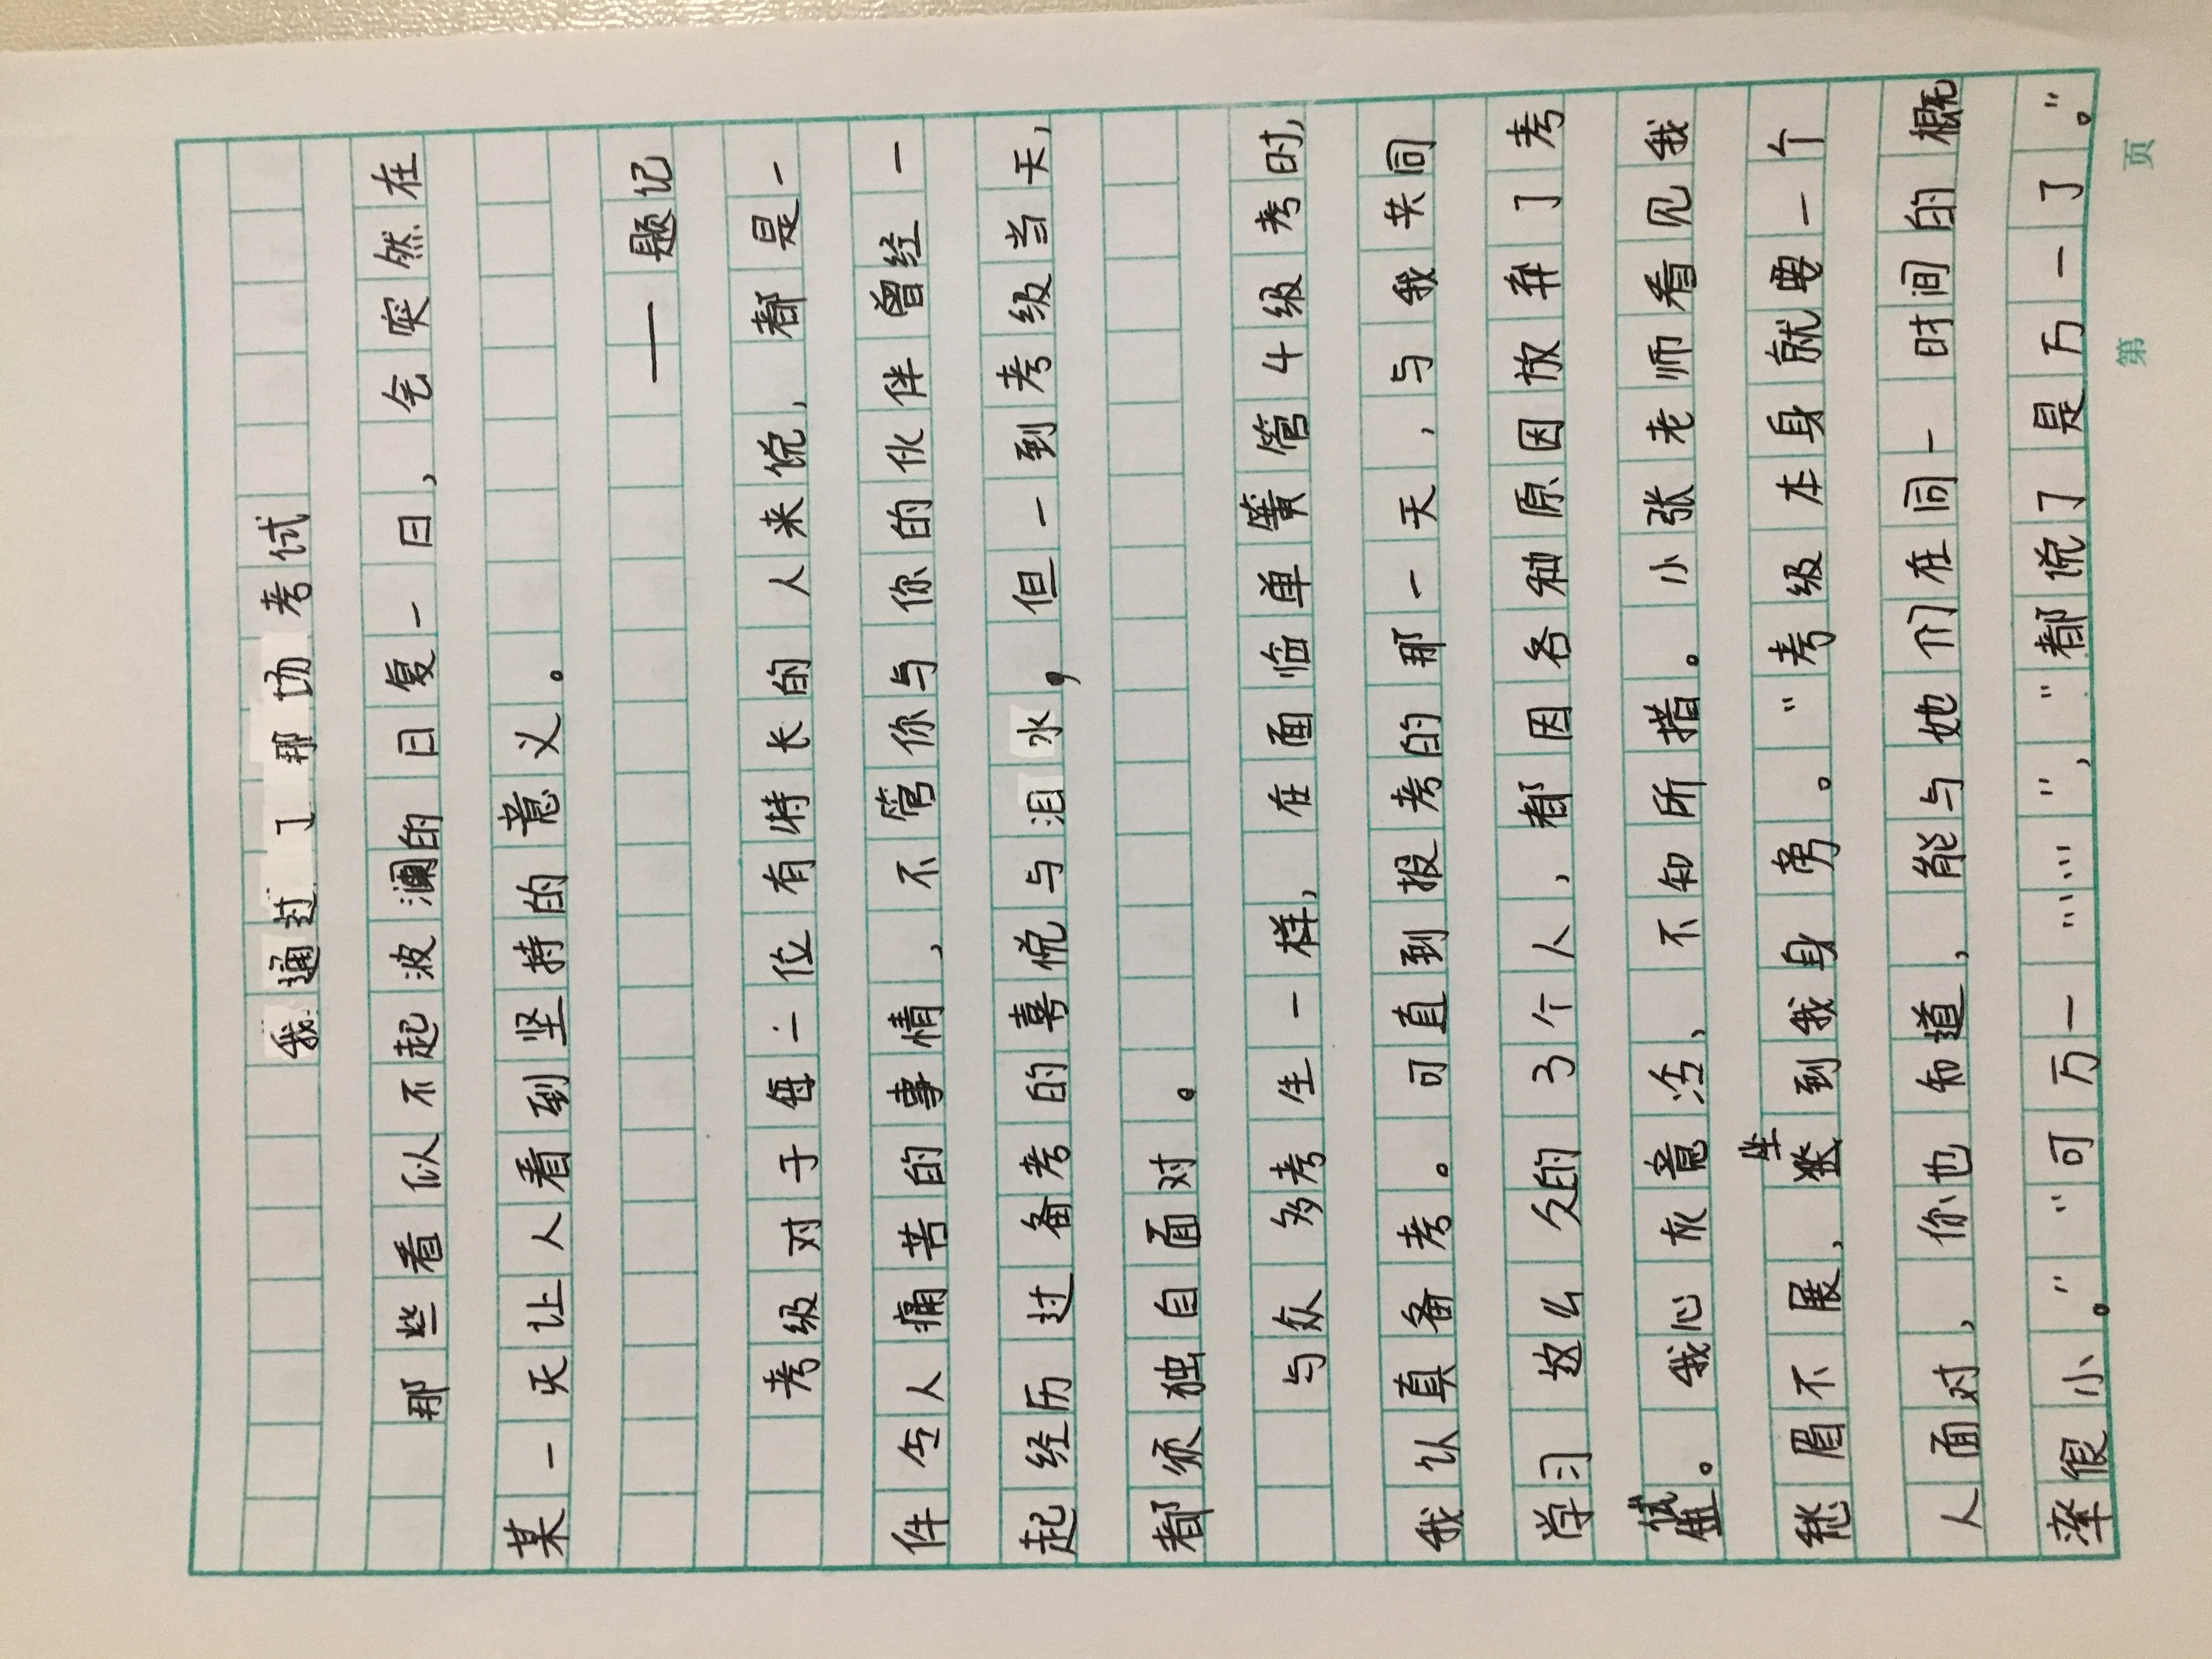 我通过了那场考试
那些看似不起波澜的日复一日，会突然在
某一天让人看到坚持的意义。
——题记
考级对于每一位有特长的人来说，都是一
件令人痛苦的事情，不管你与你的伙伴曾经一
起经历过备考的喜悦与泪水，但一到考级当天，
都须独自面对。
与众多考生一样，在面临单簧管4级考时，
我认真备考。可直到报考的那一天，与我共同
学习这么久的3个人，都因各种原因放弃了考
试。我心灰意活，不知所措。小张老师看见我
愁眉不展，坐到我身旁。“考级本身就要一个
人面对，你也知道，能与她们在同一时间的概
率很小。”“可万一……”，“都说了是万一了。”
第 页